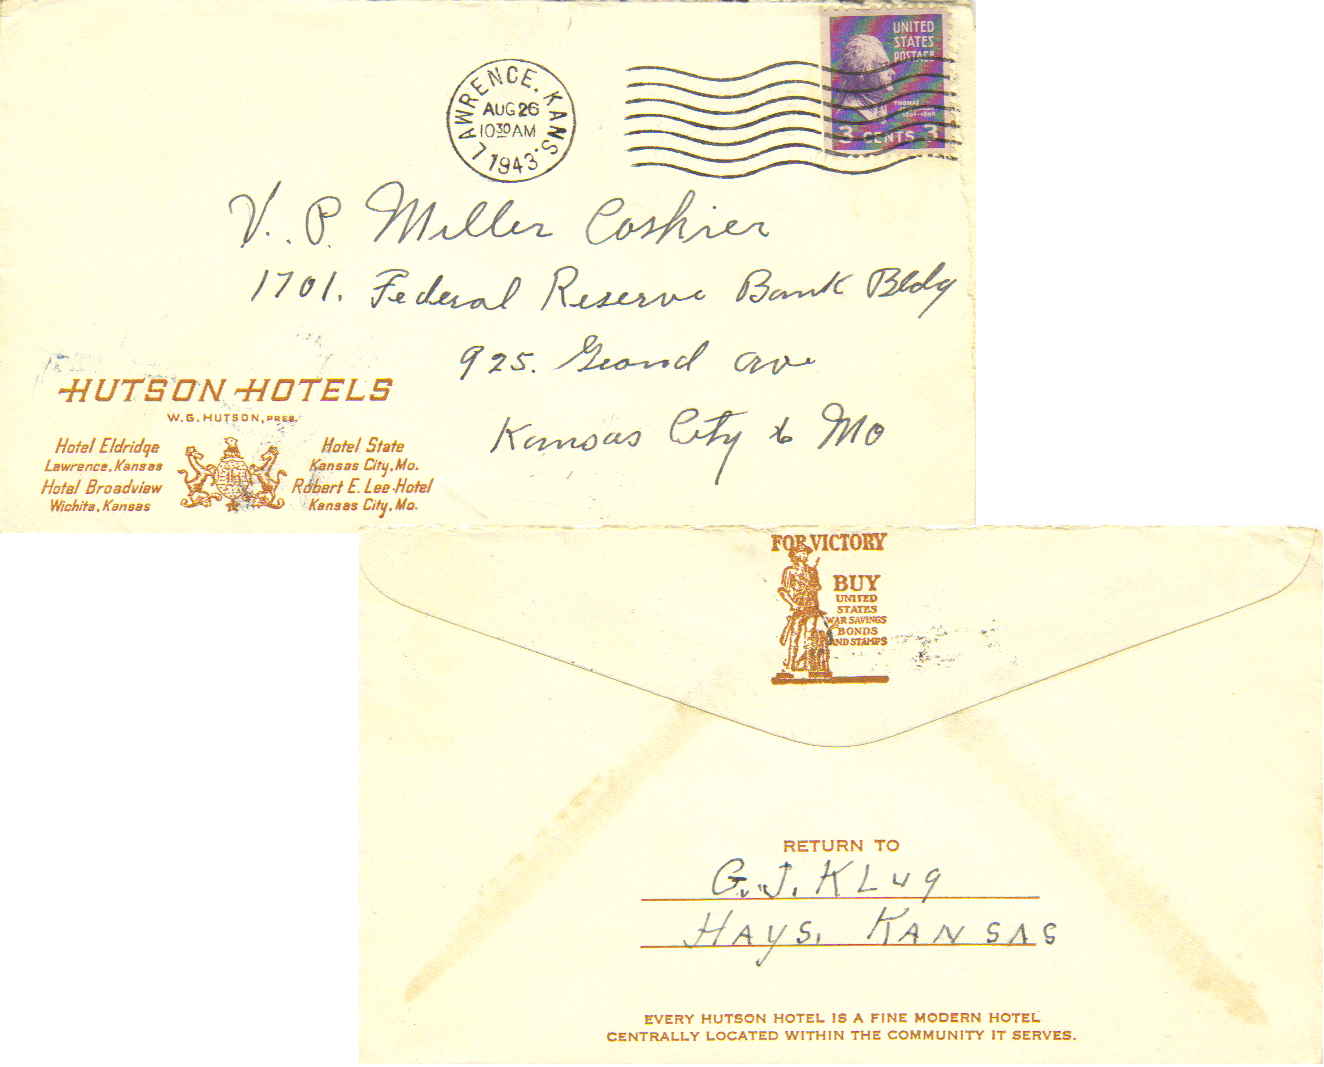 UNITED
STATES
POSTAGE
THOMAS
3 CENTS 3
LAWRENCE, KANS.
AUG 26
10 30 AM
1943
V. P. Miller Cashier
1701. Federal Reserve Bank Bldg
925. Grand ave
Kansas City Mo
HUTSON HOTELS
W. G. HUTSON, PRES.
Hotel Eldridge
Lawrence, Kansas
Hotel Broadview
Wichita, Kansas
Hotel State
Kansas City, Mo.
Robert E. Lee Hotel
Kansas City, Mo.
FOR VICTORY
BUY
UNITED
STATES
WAR SAVINGS
BONDS
AND STAMPS
RETURN TO
G. J. KLug
HAYS, KANSAS
EVERY HUTSON HOTEL IS A FINE MODERN HOTEL
CENTRALLY LOCATED WITHIN THE COMMUNITY IT SERVES.